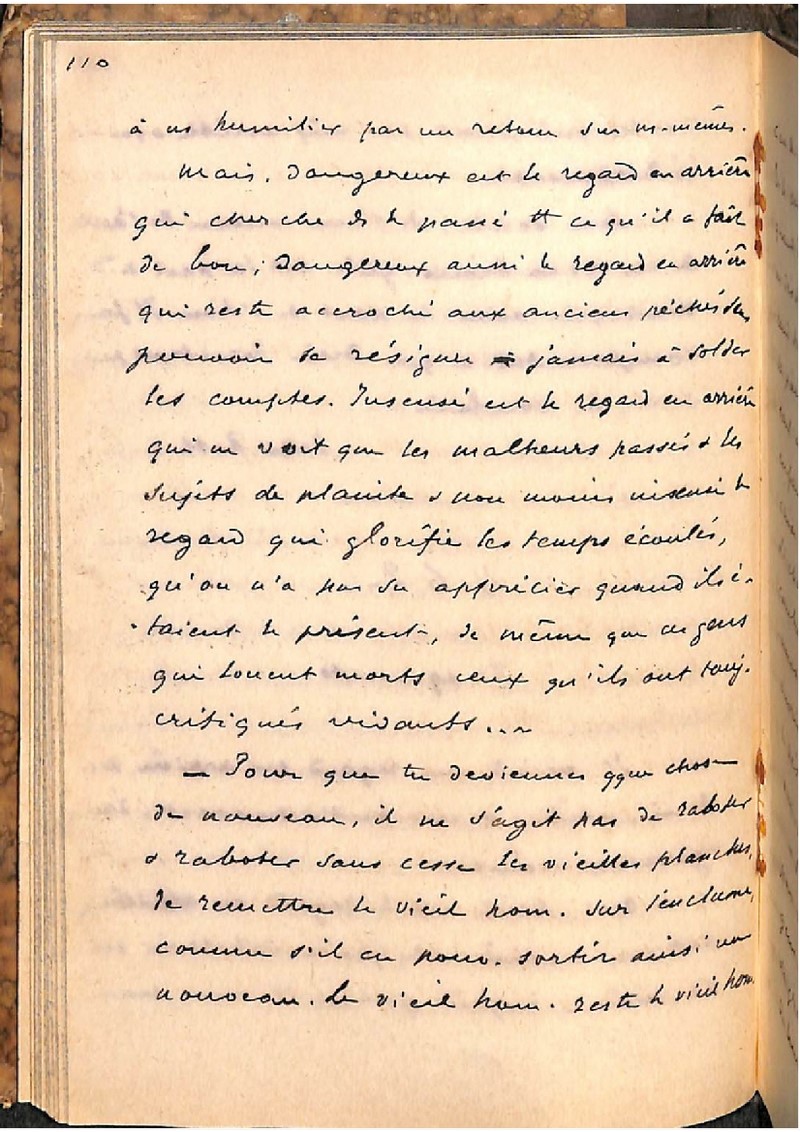 110
à ns humilier par un retour sur ns-mêmes.
Mais, dangereux est le regard en arrière
qui cherche ds le passé tt ce qu'il a fait
de bon; dangereux aussi le regard en arrière
qui reste accroché aux anciens péchés sans
pouvoir se résigner jamais à solder
les comptes. Insensé est le regard en arrière
qui ne voit que les malheurs passés & les
sujets de plainte & non moins insensé le
regard qui glorifie les temps écoulés,
qu'on n'a pas su apprécier quand ils é-
taient le présent, de même que ces gens
qui louent morts ceux qu'ils ont touj.
critiqués vivants...
— Pour que tu deviennes qque chose
de nouveau, il ne s'agit pas de raboter
& raboter sans cesse les vieilles planches,
de remettre le vieil hom. sur l'enclume,
comme s'il en pouv. sortir ainsi un
nouveau. Le vieil hom. reste le vieil hom.